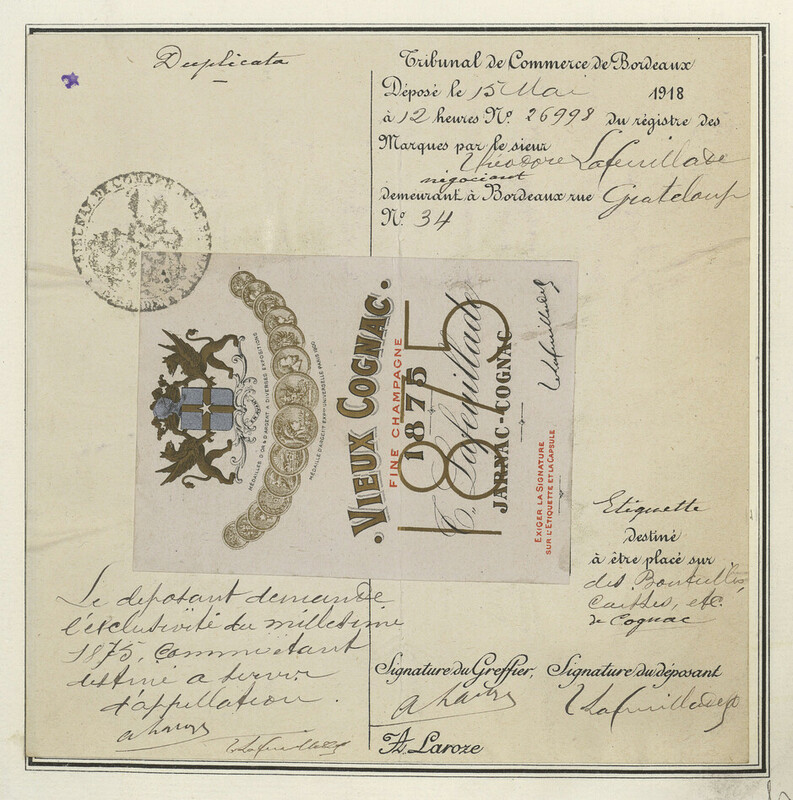 Duplicata
Tribunal de Commerce de Bordeaux
Déposé le 15 Mai 1918
à 12 heures No. 26998 du régistre des
Marques par le sieur
Théodore Lafeuillade
négociant
demeurant à Bordeaux rue Grateloup
No. 34
MÉDAILLES D'OR & D'ARGENT A DIVERSES EXPOSITIONS
MÉDAILLE D'ARGENT EXPon UNIVERSELLE PARIS 1900
VIEUX COGNAC.
FINE CHAMPAGNE
1875
1875
T. Lafeuillade
JARNAC-COGNAC
T. Lafeuillade
EXIGER LA SIGNATURE
SUR L'ETIQUETTE ET LA CAPSULE
Etiquette
destiné
à être placé sur
des Bouteilles,
Caisses, etc.
de Cognac
Le déposant demande
l'exclusivité du millésime
1875, comme étant
destiné a servir
d'appellation.
T. Lafeuillade
Signature du Greffier, Signature du déposant
T. Lafeuillade
Laroze